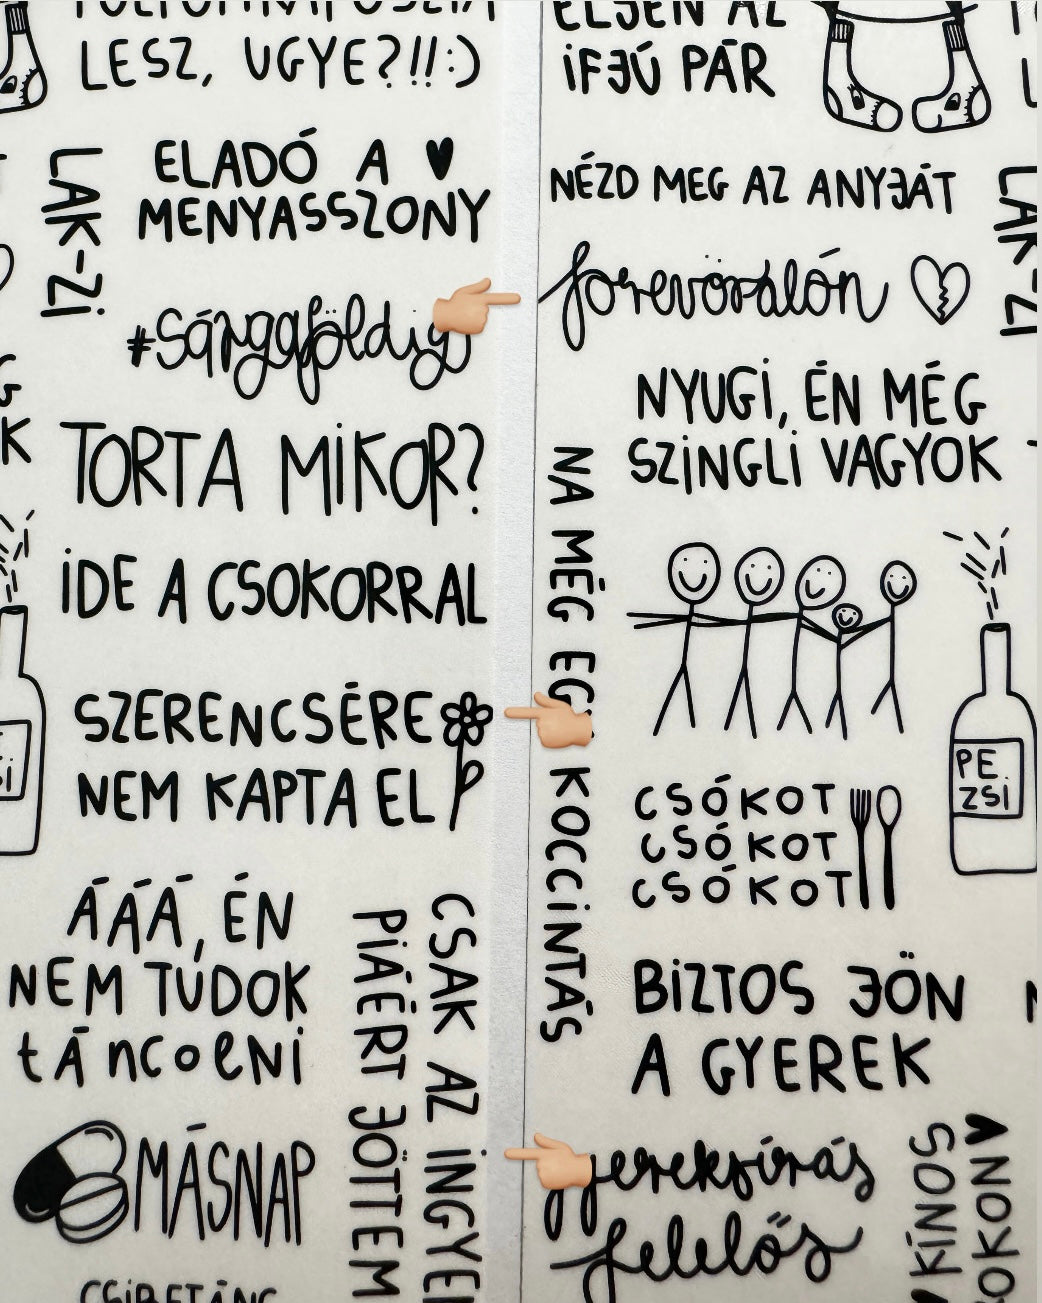 LESZ, UGYE?!!:)
ELADÓ A
MENYASSZONY
LAK-Zi
#Sárgaföldig
TORTA MiKOR?
iDE A CSOKORRAL
SZERENCSÉRE
NEM KAPTA EL
ÁÁÁ, ÉN
NEM TUDOK
tÁncolNi
CSAK AZ INGYEN
PiÁÉRT JÖTTEM
MÁSNAP
CSiRETÁNC
ÉLJEN AZ
iFJÚ PÁR
NÉZD MEG AZ ANYJÁT
LAK-Zi
forevöralón
NYUGi, ÉN MÉG
SZiNGLi VAGYOK
NA MÉG EGY KOCCiNTÁS
PE
ZSi
CSÓKOT
CSÓKOT
CSÓKOT
BiZTOS JÖN
A GYEREK
gyereksírás
felelős
KÍNOS